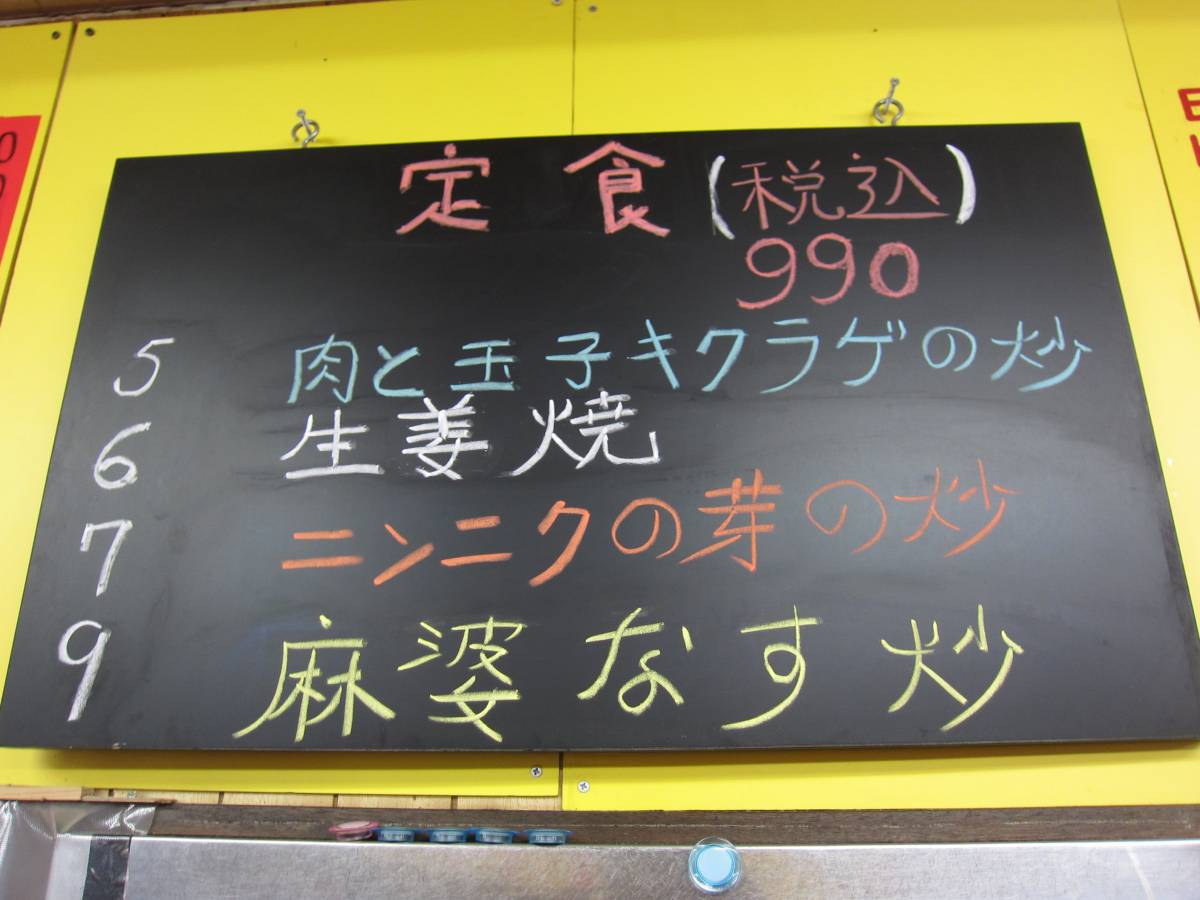 定食(税込)
990
5 肉と玉子キクラゲの炒
6 生姜焼
7 ニンニクの芽の炒
9 麻婆なす炒